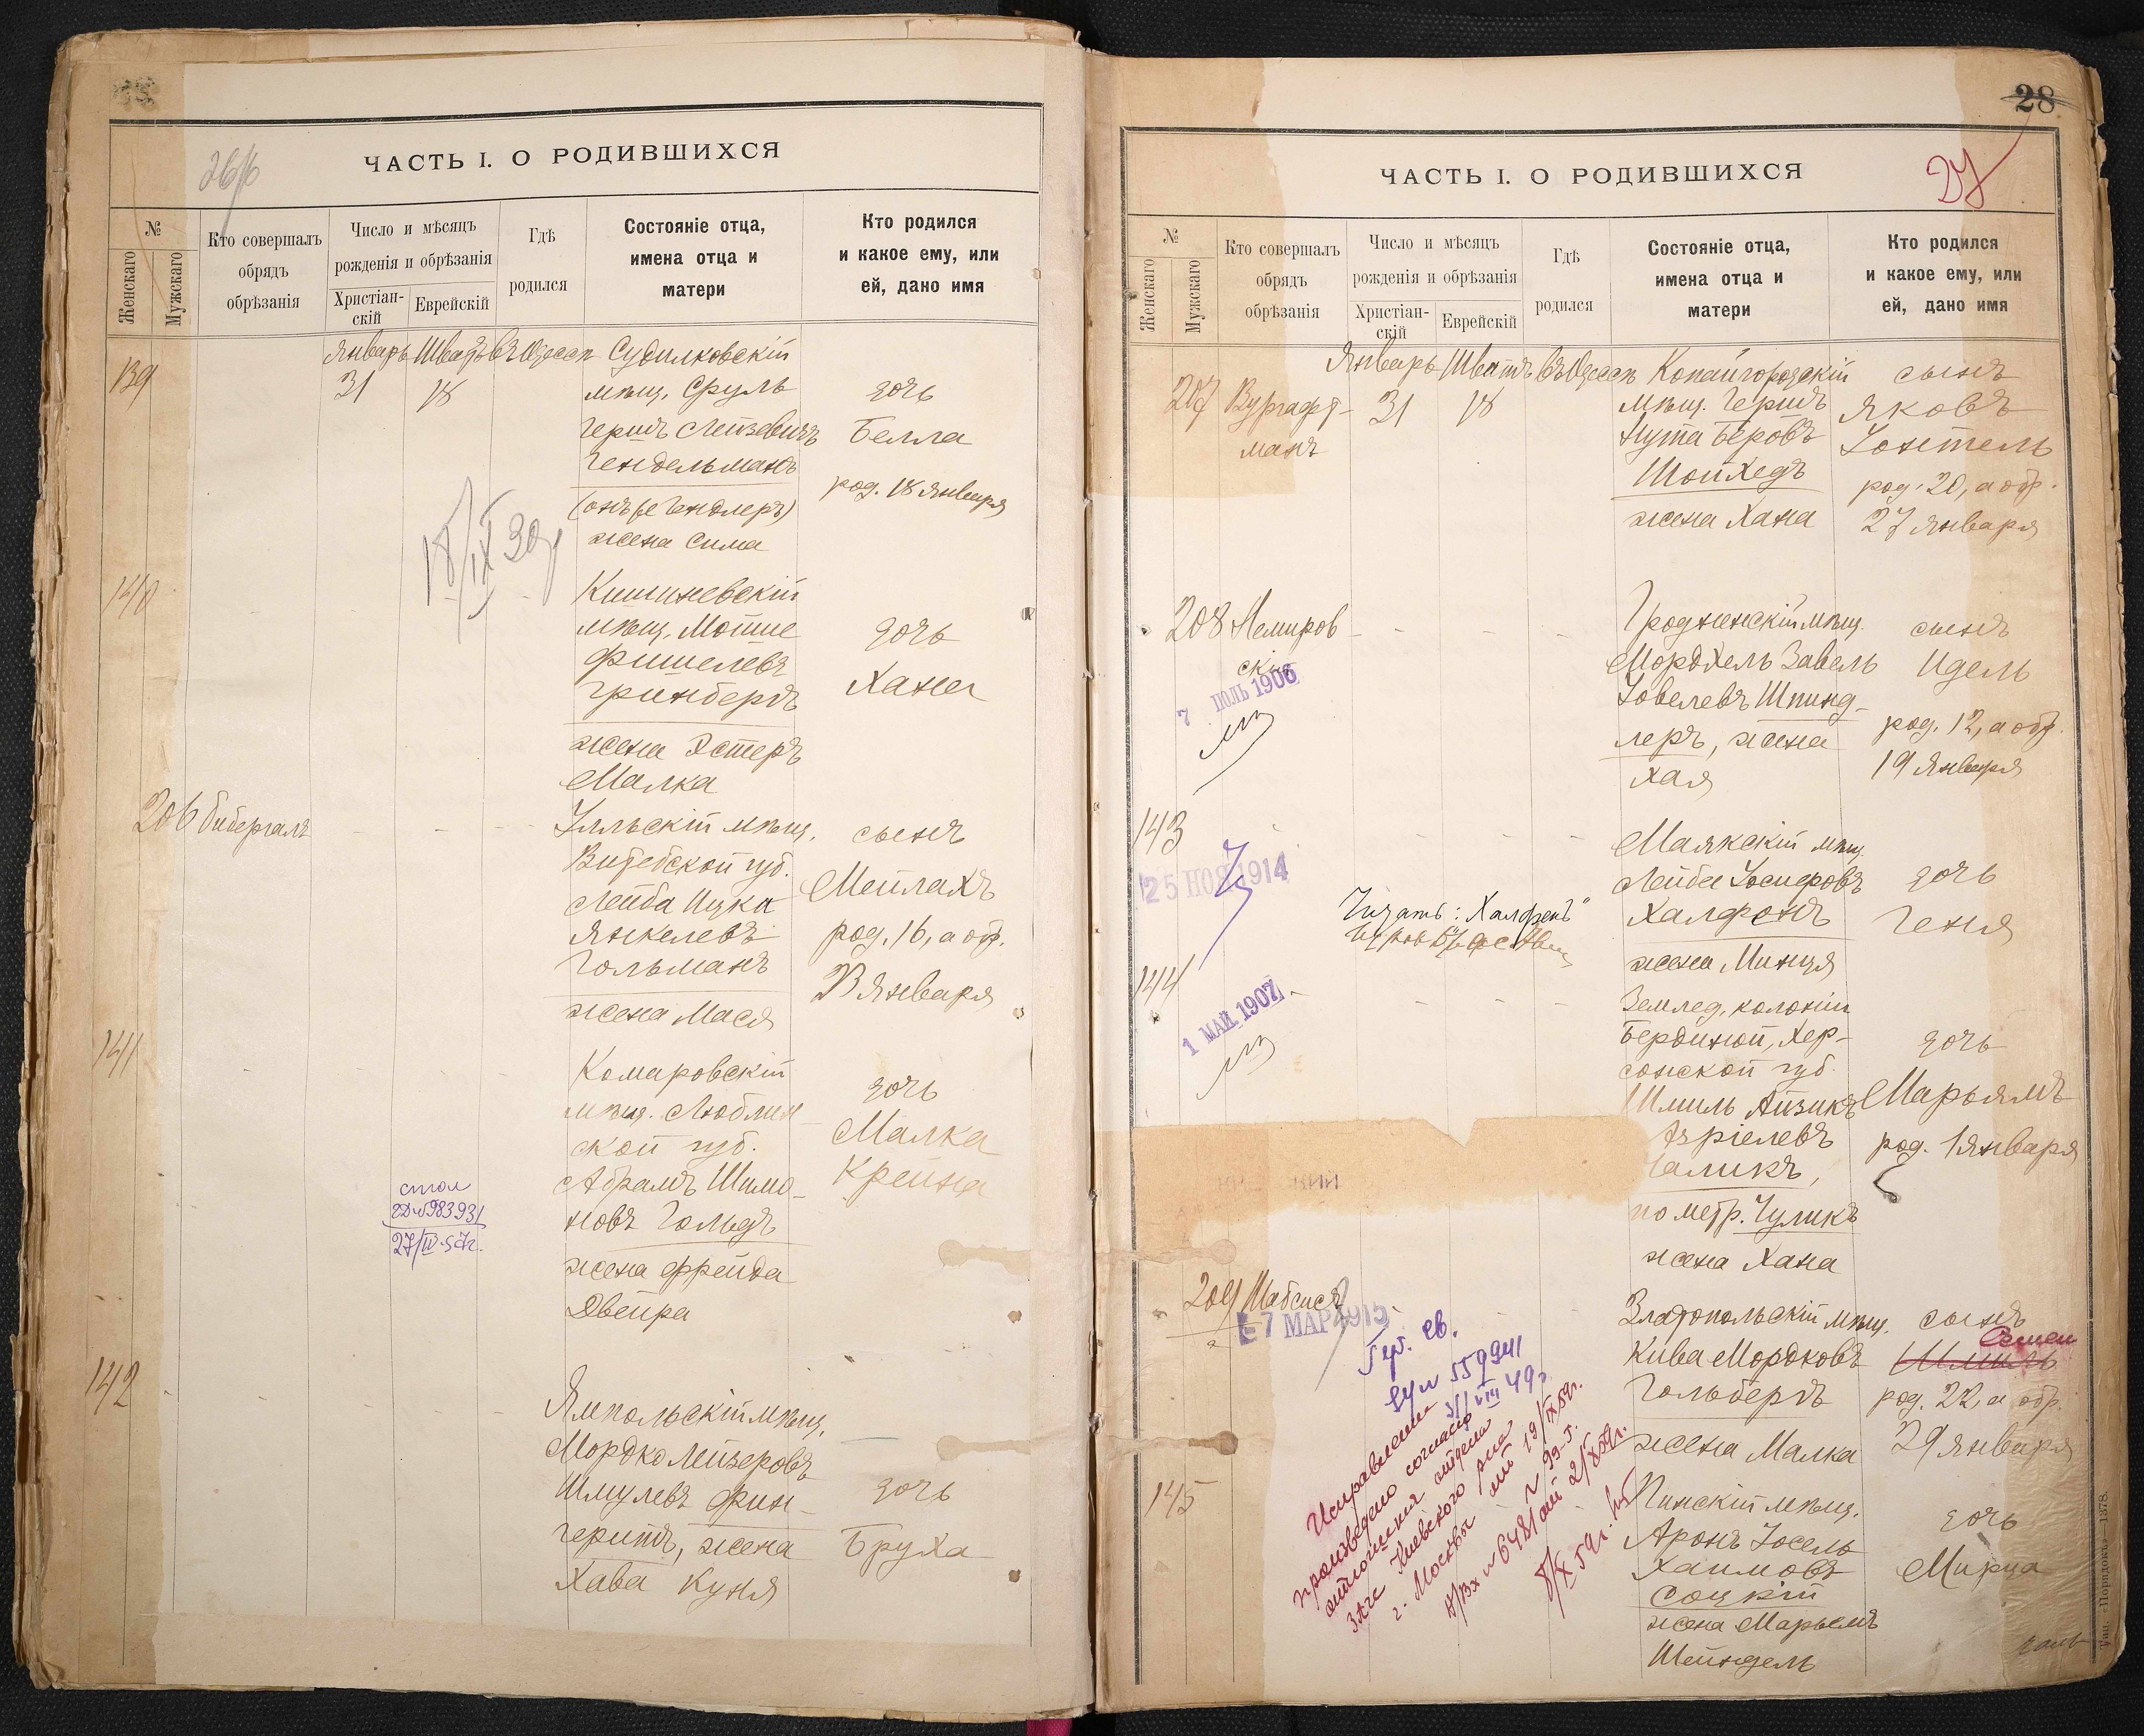 ЧАСТЬ I. О РОДИВШИХСЯ
№
Женскаго
Мужскаго
Кто совершалъ
обрядъ
обрѣзанія
Число и мѣсяцъ
рожденія и обрѣзанія
Христіан-
скій
Еврейскій
Гдѣ
родился
Состояніе отца,
имена отца и
матери
Кто родился
и какое ему, или
ей, дано имя
139
Январь Шватъ въ Одессѣ
31 18
Судилковскій
мѣщ. Сруль
Гершъ Лейзевичъ
Гендельманъ
(онъ же Гендлеръ)
жена Сима
дочь
Белла
род. 18 Января
18/IX 39
140
Кишиневскій
мѣщ. Мотше
Фишелевъ
Гринбергъ
жена Эстеръ
Малка
дочь
Хана
206 Бибергалъ
Улльскій мѣщ.
Витебской губ.
Лейба Ицка
Янкелевъ
Гольманъ
жена Мася
сынъ
Мейлахъ
род. 16, а обр.
23 Января
141
Комаровскій
мѣщ. Люблин
ской губ.
Абрамъ Шимо-
новъ Гольдъ
жена Фрейда
Двейра
дочь
Малка
Крейна
27/IV
142
Ямпольскій мѣщ.
Мордко Лейзеровъ
Шмулевъ Фин-
геритъ, жена
Хава Куня
дочь
Бруха
28
27
ЧАСТЬ I. О РОДИВШИХСЯ
№
Женскаго
Мужскаго
Кто совершалъ
обрядъ
обрѣзанія
Число и мѣсяцъ
рожденія и обрѣзанія
Христіан-
скій
Еврейскій
Гдѣ
родился
Состояніе отца,
имена отца и
матери
Кто родился
и какое ему, или
ей, дано имя
207 Вургафт-
манъ
Январь Шватъ въ Одессѣ
31 18
Копайгородскій
мѣщ. Гершъ
Нута Беровъ
Шойхедъ
жена Хана
сынъ
Яковъ
Іонтель
род. 20, а обр.
27 Января
208 Немиров
скій
7 ІЮЛЬ 1906
Гродненскій мѣщ.
Мордхель Завель
Іовелевъ Шпинд-
леръ, жена
Хая
сынъ
Идель
род. 12, а обр.
19 Января
143
25 НОЯ 1914
Читать: „Халфенъ"
Маякскій мѣщ.
Лейба Іосифовъ
Халфонъ
жена Минця
дочь
Геня
144
1 МАЙ 1907
Землед. колоніи
Хер-
сонской губ.
Шмиль Айзикъ
Азріелевъ
Галикъ,
по метр. Чуликъ
жена Хана
дочь
Марьямъ
род. 1 Января
209 Шабсисъ
7 МАР 1915
Златопольскій мѣщ.
Кива Мордковъ
Гольбергъ
жена Малка
сынъ
Семен
Шмиль
род. 22, а обр.
29 Января
Гер. св.
559941
VIII 49г.
Исправление
произведено согласно
заключения отдела
ЗАГС Киевского р-на
г. Москвы от 19/IX 59г.
№ 99-Г.
Вх № 6481 от 2/X 59г.
8/X 59г.
145
Пинскій мѣщ.
Аронъ Іосель
Хаимовъ
Соцкій
жена Марьемъ
Шейндель
дочь
Мирца
Тип. „Порядокъ"—1378.